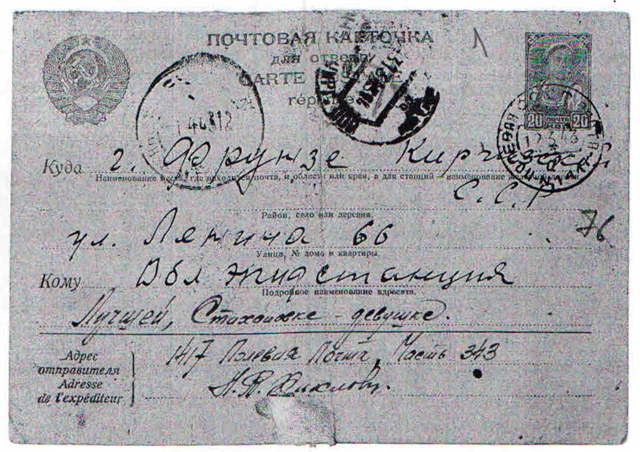 ПОЧТОВАЯ КАРТОЧКА
для ответа
CARTE
réponse
20 ПОЧТА 20
Куда г. Фрунзе Киргизской
Наименование места, где находится почта, и области или края, а для станций – наименование
С.С.Р
Район, село или деревня.
76
ул. Ленина 66
Улица, № дома и квартиры.
Кому Обл
Подробное наименование адресата.
Лучшей, девушке.
Адрес
отправителя
Adresse
de l'expéditeur
1417 Полевая Почта, Часть 343